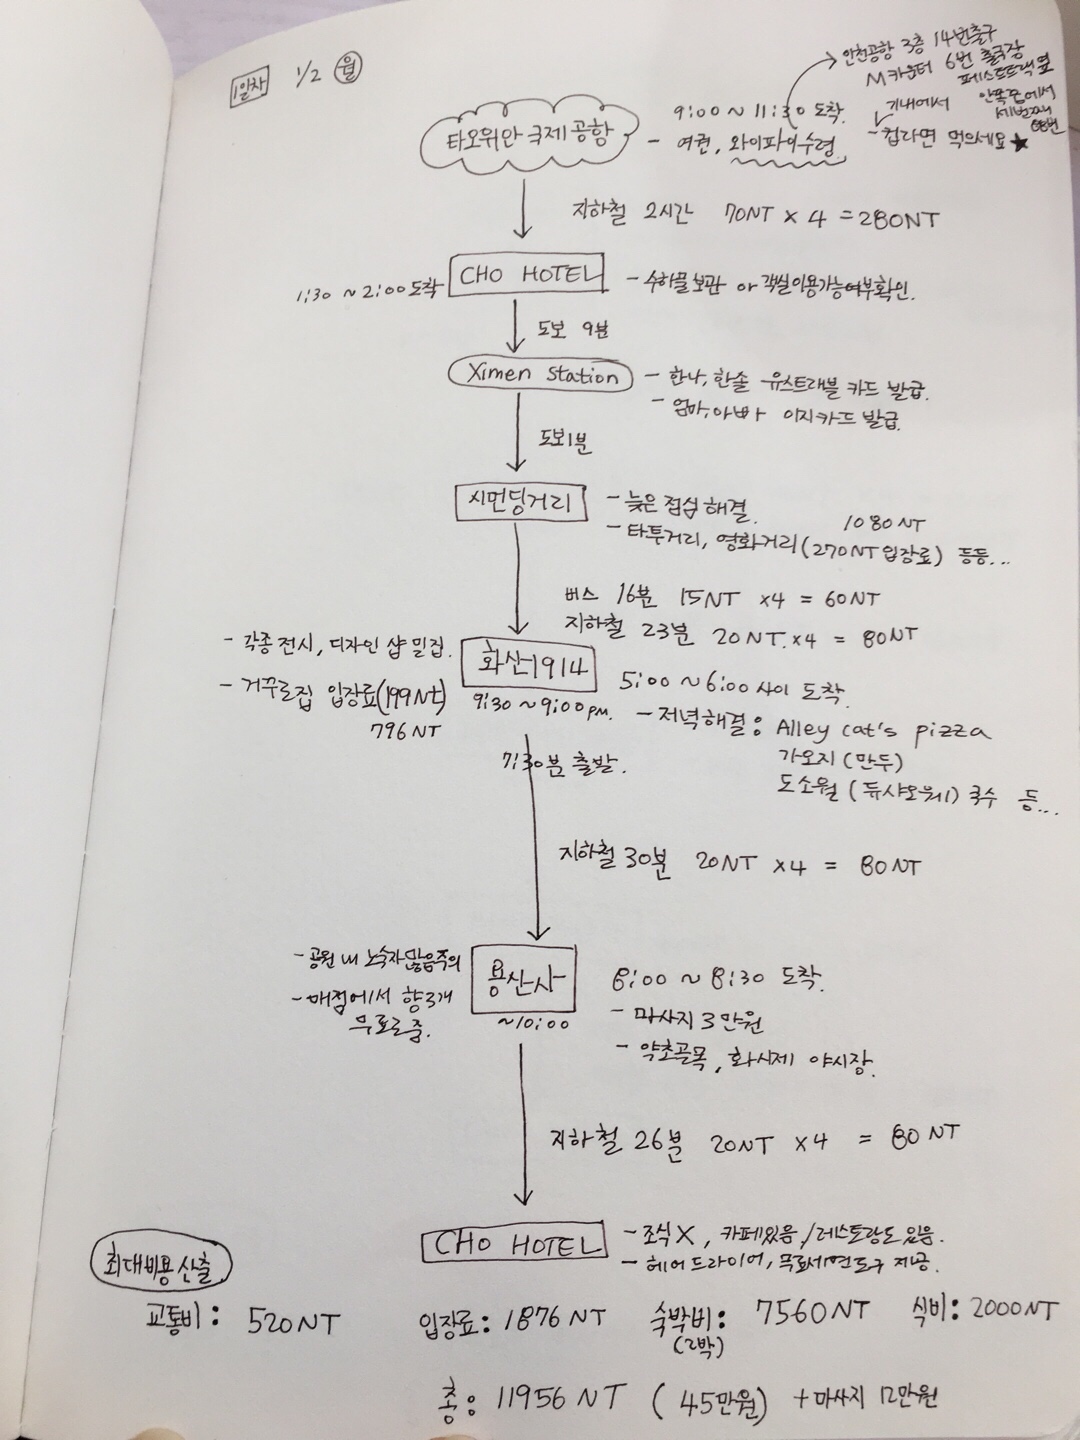 1일차 1/2 월
인천공항 3층 14번출구
M카운터 6번 출국장
안쪽줄에서
세번째
타오위안 국제공항
9:00 ~ 11:30 도착.
- 여권, 와이파이수령
기내에서
- 컵라면 먹으세요 ★
지하철 2시간 70NT × 4 = 280NT
1:30 ~ 2:00 도착
CHO HOTEL
- 수하물보관 or 객실이용가능여부확인.
도보 9분
Ximen Station
- 한나, 한솔 유스트래블 카드 발급.
- 엄마, 아빠 이지카드 발급.
도보1분
시먼딩거리
- 늦은 점심 해결.
1080NT
- 타투거리, 영화거리(270NT입장료) 등등...
버스 16분 15NT ×4 = 60NT
지하철 23분 20NT.×4 = 80NT
- 각종 전시, 디자인 샵 밀집.
화산1914
- 거꾸로집 입장료(199Nt)
796NT
9:30 ~ 9:00pm.
5:00 ~ 6:00 사이 도착.
- 저녁해결: Alley cat's pizza
가오지 (만두)
도소월 (듀샤오위에) 국수 등...
7:30분 출발.
지하철 30분 20NT ×4 = 80NT
- 공원 내 노숙자많음주의
- 매점에서 향3개
무료로줌.
용산사
~10:00
8:00 ~ 8:30 도착.
- 마사지 3만원
- 약초골목, 화시제 야시장.
지하철 26분 20NT ×4 = 80NT
CHO HOTEL
- 조식X, 카페있음/레스토랑도 있음.
- 헤어드라이어, 무료세면도구 제공.
최대비용산출
교통비: 520NT 입장료: 1876NT 숙박비: 7560NT 식비: 2000NT
(2박)
총: 11956NT (45만원) +마사지 12만원